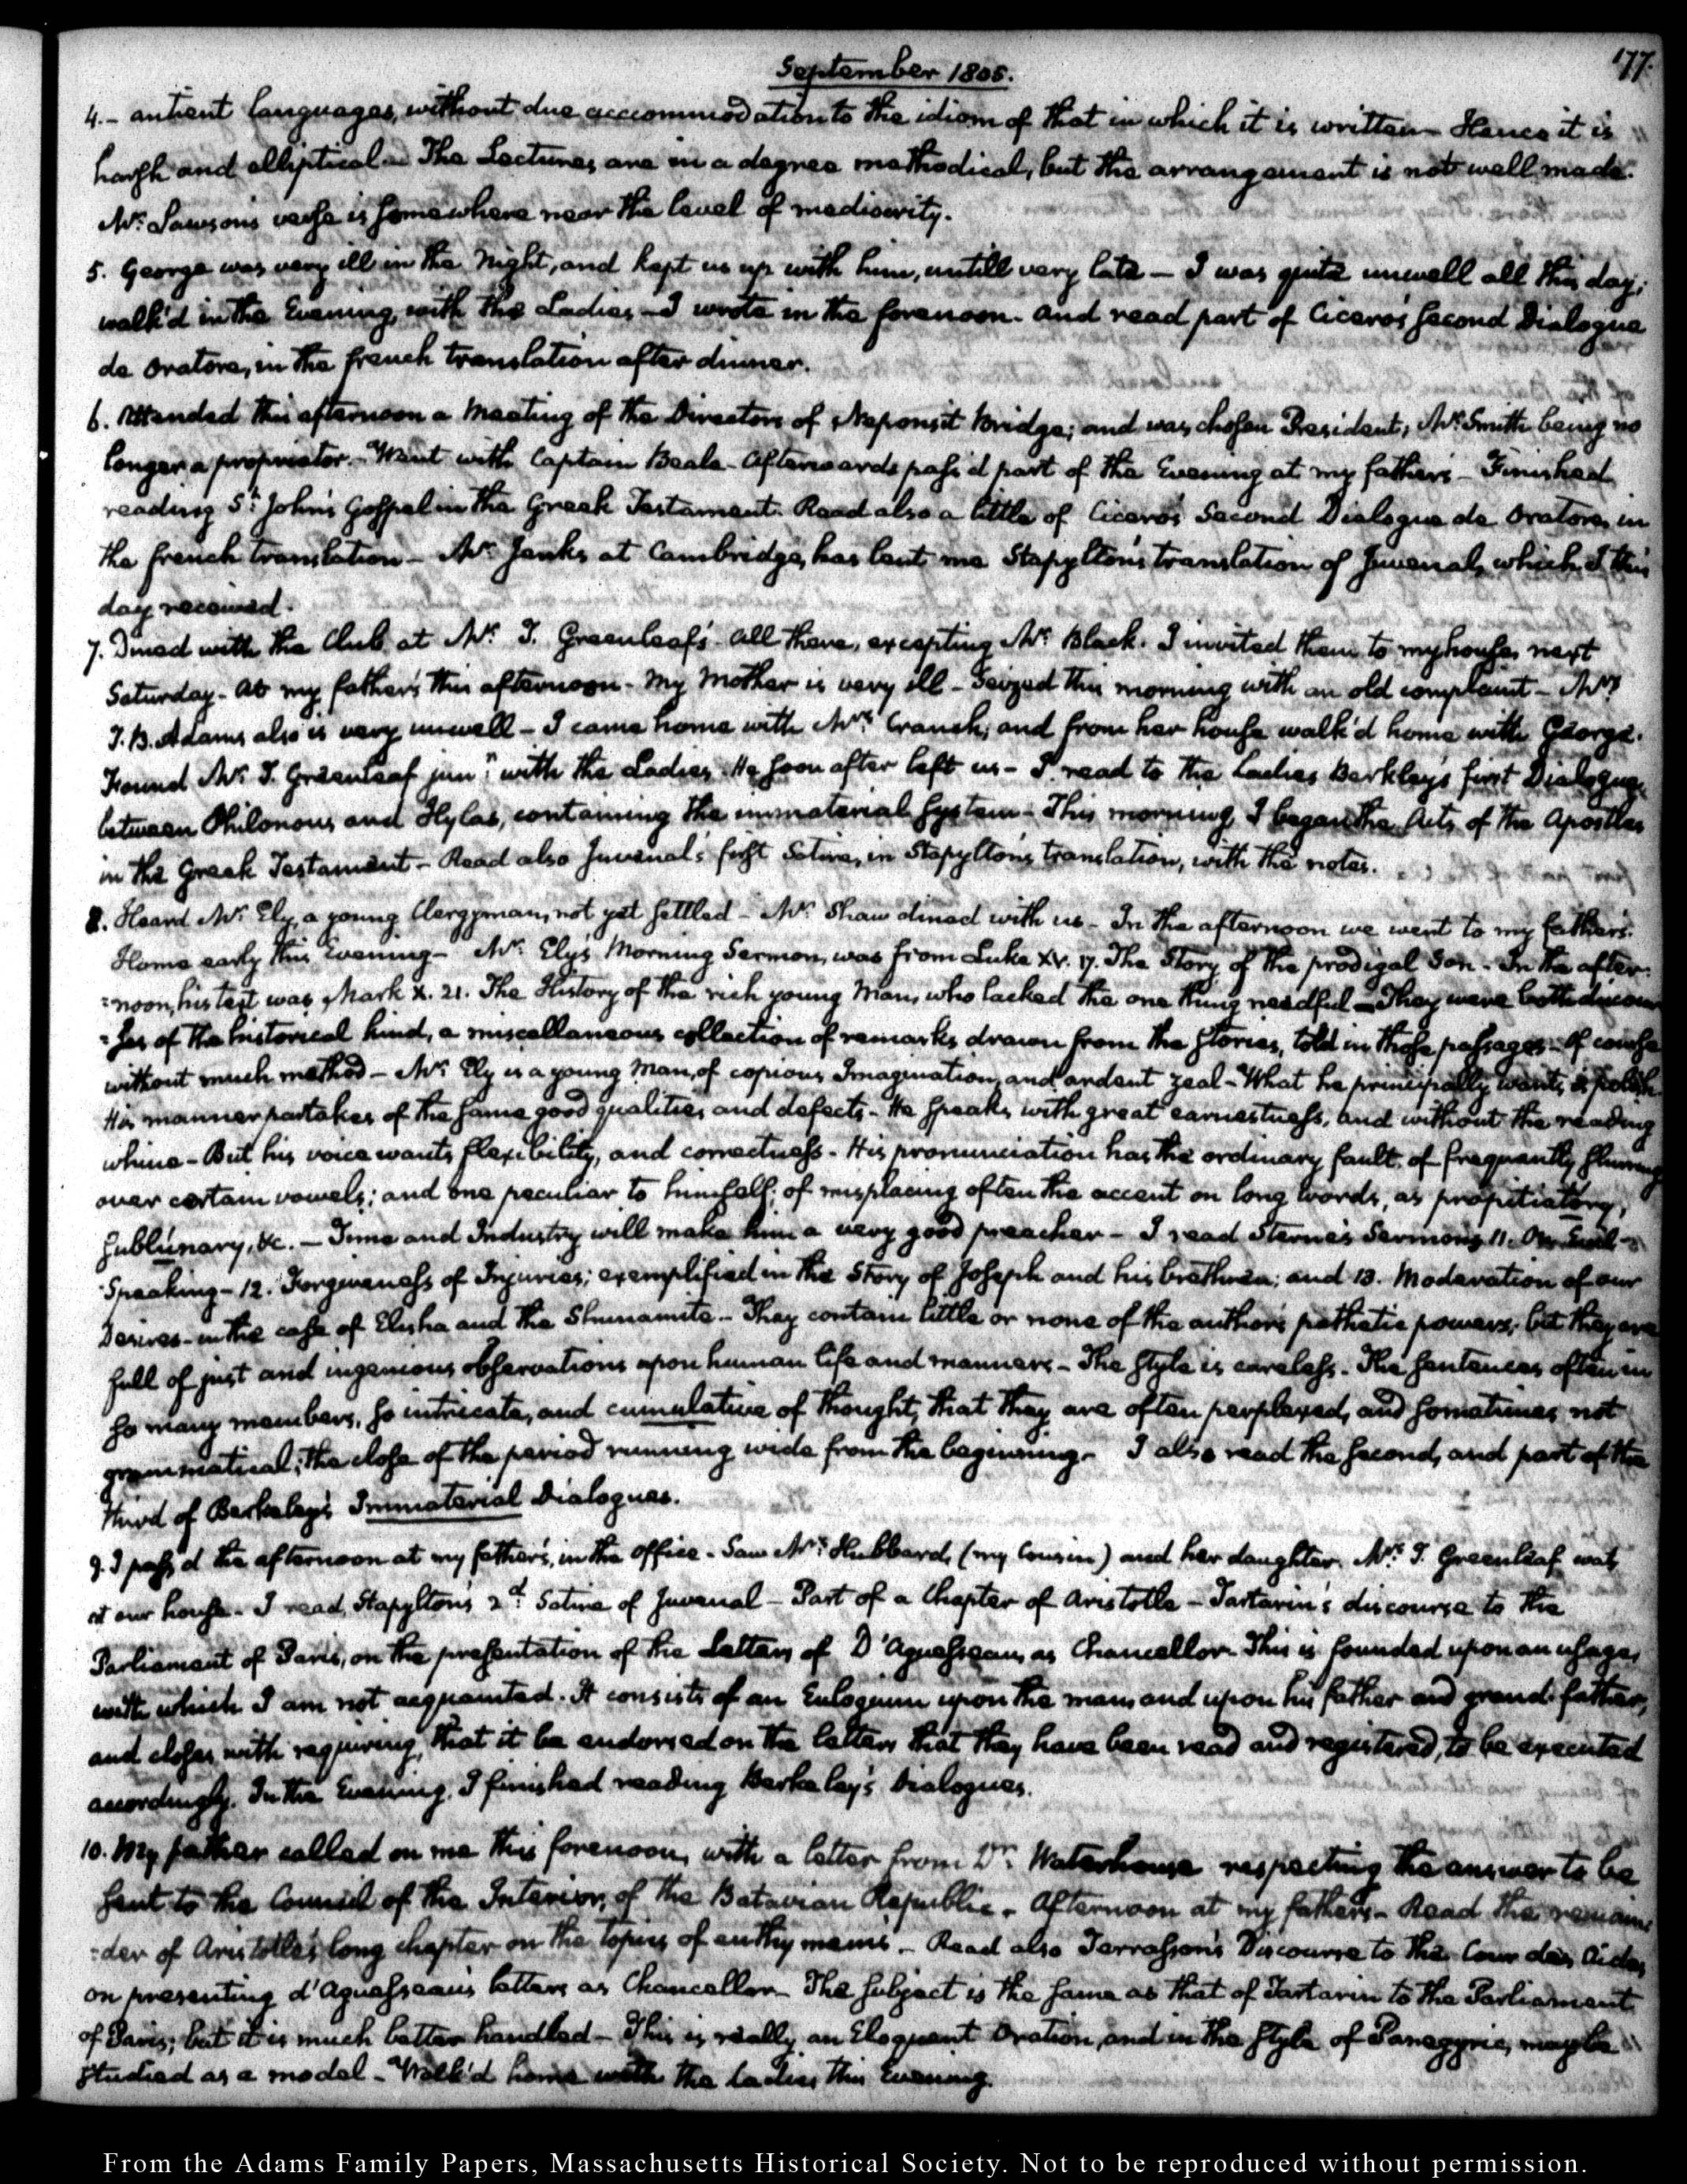 177.
September 1805.
4.- antient languages, without due accommodation to the idiom of that in which it is written - Hence it is
harsh and elliptical - The Lectures are in a degree methodical, but the arrangement is not well made.
Mr. Lawson's verse is somewhere near the level of mediocrity.
5. George was very ill in the Night, and kept us up with him, untill very late - I was quite unwell all this day;
walk'd in the Evening, with the Ladies - I wrote in the forenoon - and read part of Cicero's second Dialogue
de Oratore, in the french translation after dinner.
6. Attended this afternoon a Meeting of the Directors of Neponsit Bridge; and was chosen President; Mr. Smith being no
longer a proprietor - Went with Captain Beale - Afterwards pass'd part of the Evening at my father's - Finished
reading St. John's Gospel in the Greek Testament. Read also a little of Cicero's Second Dialogue de Oratore, in
the french translation - Mr. Jenks at Cambridge, has lent me Stapylton's translation of Juvenal, which I this
day received.
7. Dined with the Club at Mr. T. Greenleaf's - All there, excepting Mr. Black. I invited them to my house, next
Saturday - At my father's this afternoon - My Mother is very ill - Seized this morning with an old complaint - Mrs.
T. B. Adams also is very unwell - I came home with Mrs. Cranch; and from her house walk'd home with George.
Found Mr. T. Greenleaf junr. with the Ladies. He soon after left us - I read to the Ladies Berkley's first Dialogue,
between Philonous and Hylas, containing the immaterial system - This morning, I began the Acts of the Apostles
in the Greek Testament - Read also Juvenal's first Satire, in Stapylton's translation, with the notes.
8. Heard Mr. Ely, a young Clergyman, not yet settled - Mr. Shaw dined with us - In the afternoon we went to my father's.
Home early this Evening - Mr. Ely's Morning Sermon, was from Luke XV. 17. The Story of the prodigal Son - In the after:
:noon, his text was Mark X. 21. The History of the rich young Man, who lacked the one thing needful - They were both discour
:ses of the historical kind, a miscellaneous collection of remarks drawn from the stories, told in those passages - Of course
without much method - Mr. Ely is a young Man, of copious Imagination, and ardent zeal - What he principally wants, is polish.
His manner partakes of the same good qualities and defects - He speaks with great earnestness, and without the reading
whine - But his voice wants flexibility, and correctness - His pronunciation has the ordinary fault, of frequently slurring
over certain vowels; and one peculiar to himself; of misplacing often the accent on long words, as propitiatory,
sublunary, &c. - Time and Industry will make him a very good preacher - I read Sterne's Sermons, 11. On Evil-
Speaking - 12. Forgiveness of Injuries; exemplified in the Story of Joseph and his brethren; and 13. Moderation of our
Desires - in the case of Elisha and the Shunamite - They contain little or none of the author's pathetic powers; but they are
full of just and ingenious observations upon human life and manners - The style is careless - The sentences often in
so many members, so intricate, and cumulative of thought, that they are often perplexed, and sometimes not
grammatical; the close of the period running wide from the beginning - I also read the second, and part of the
third of Berkeley's Immaterial Dialogues.
9. I pass'd the afternoon at my father's, in the office - Saw Mrs. Hubbard, (my Cousin) and her daughter. Mrs. T. Greenleaf was
at our house - I read Stapylton's 2d. Satire of Juvenal - Part of a Chapter of Aristotle - Tartarin's discourse to the
Parliament of Paris, on the presentation of the Letters of D'Aguesseau, as Chancellor - This is founded upon an usage,
with which I am not acquainted. It consists of an Eulogium upon the man, and upon his father and grand-father,
and closes with requiring, that it be endorsed on the letters that they have been read and registered, to be executed
accordingly. In the Evening, I finished reading Berkeley's Dialogues.
10. My father called on me this forenoon, with a letter from Dr. Waterhouse respecting the answer to be
sent to the Council of the Interior, of the Batavian Republic. Afternoon at my father's - Read the remain
:der of Aristotle's long chapter on the topics of enthymems - Read also Terrasson's Discourse to the Cour des Aides,
on presenting d'Aguesseau's letters as Chancellor - The subject is the same as that of Tartarin to the Parliament
of Paris; but it is much better handled - This is really an Eloquent Oration, and in the style of Panegyric, may be
studied as a model - Walk'd home with the ladies this Evening.
From the Adams Family Papers, Massachusetts Historical Society. Not to be reproduced without permission.